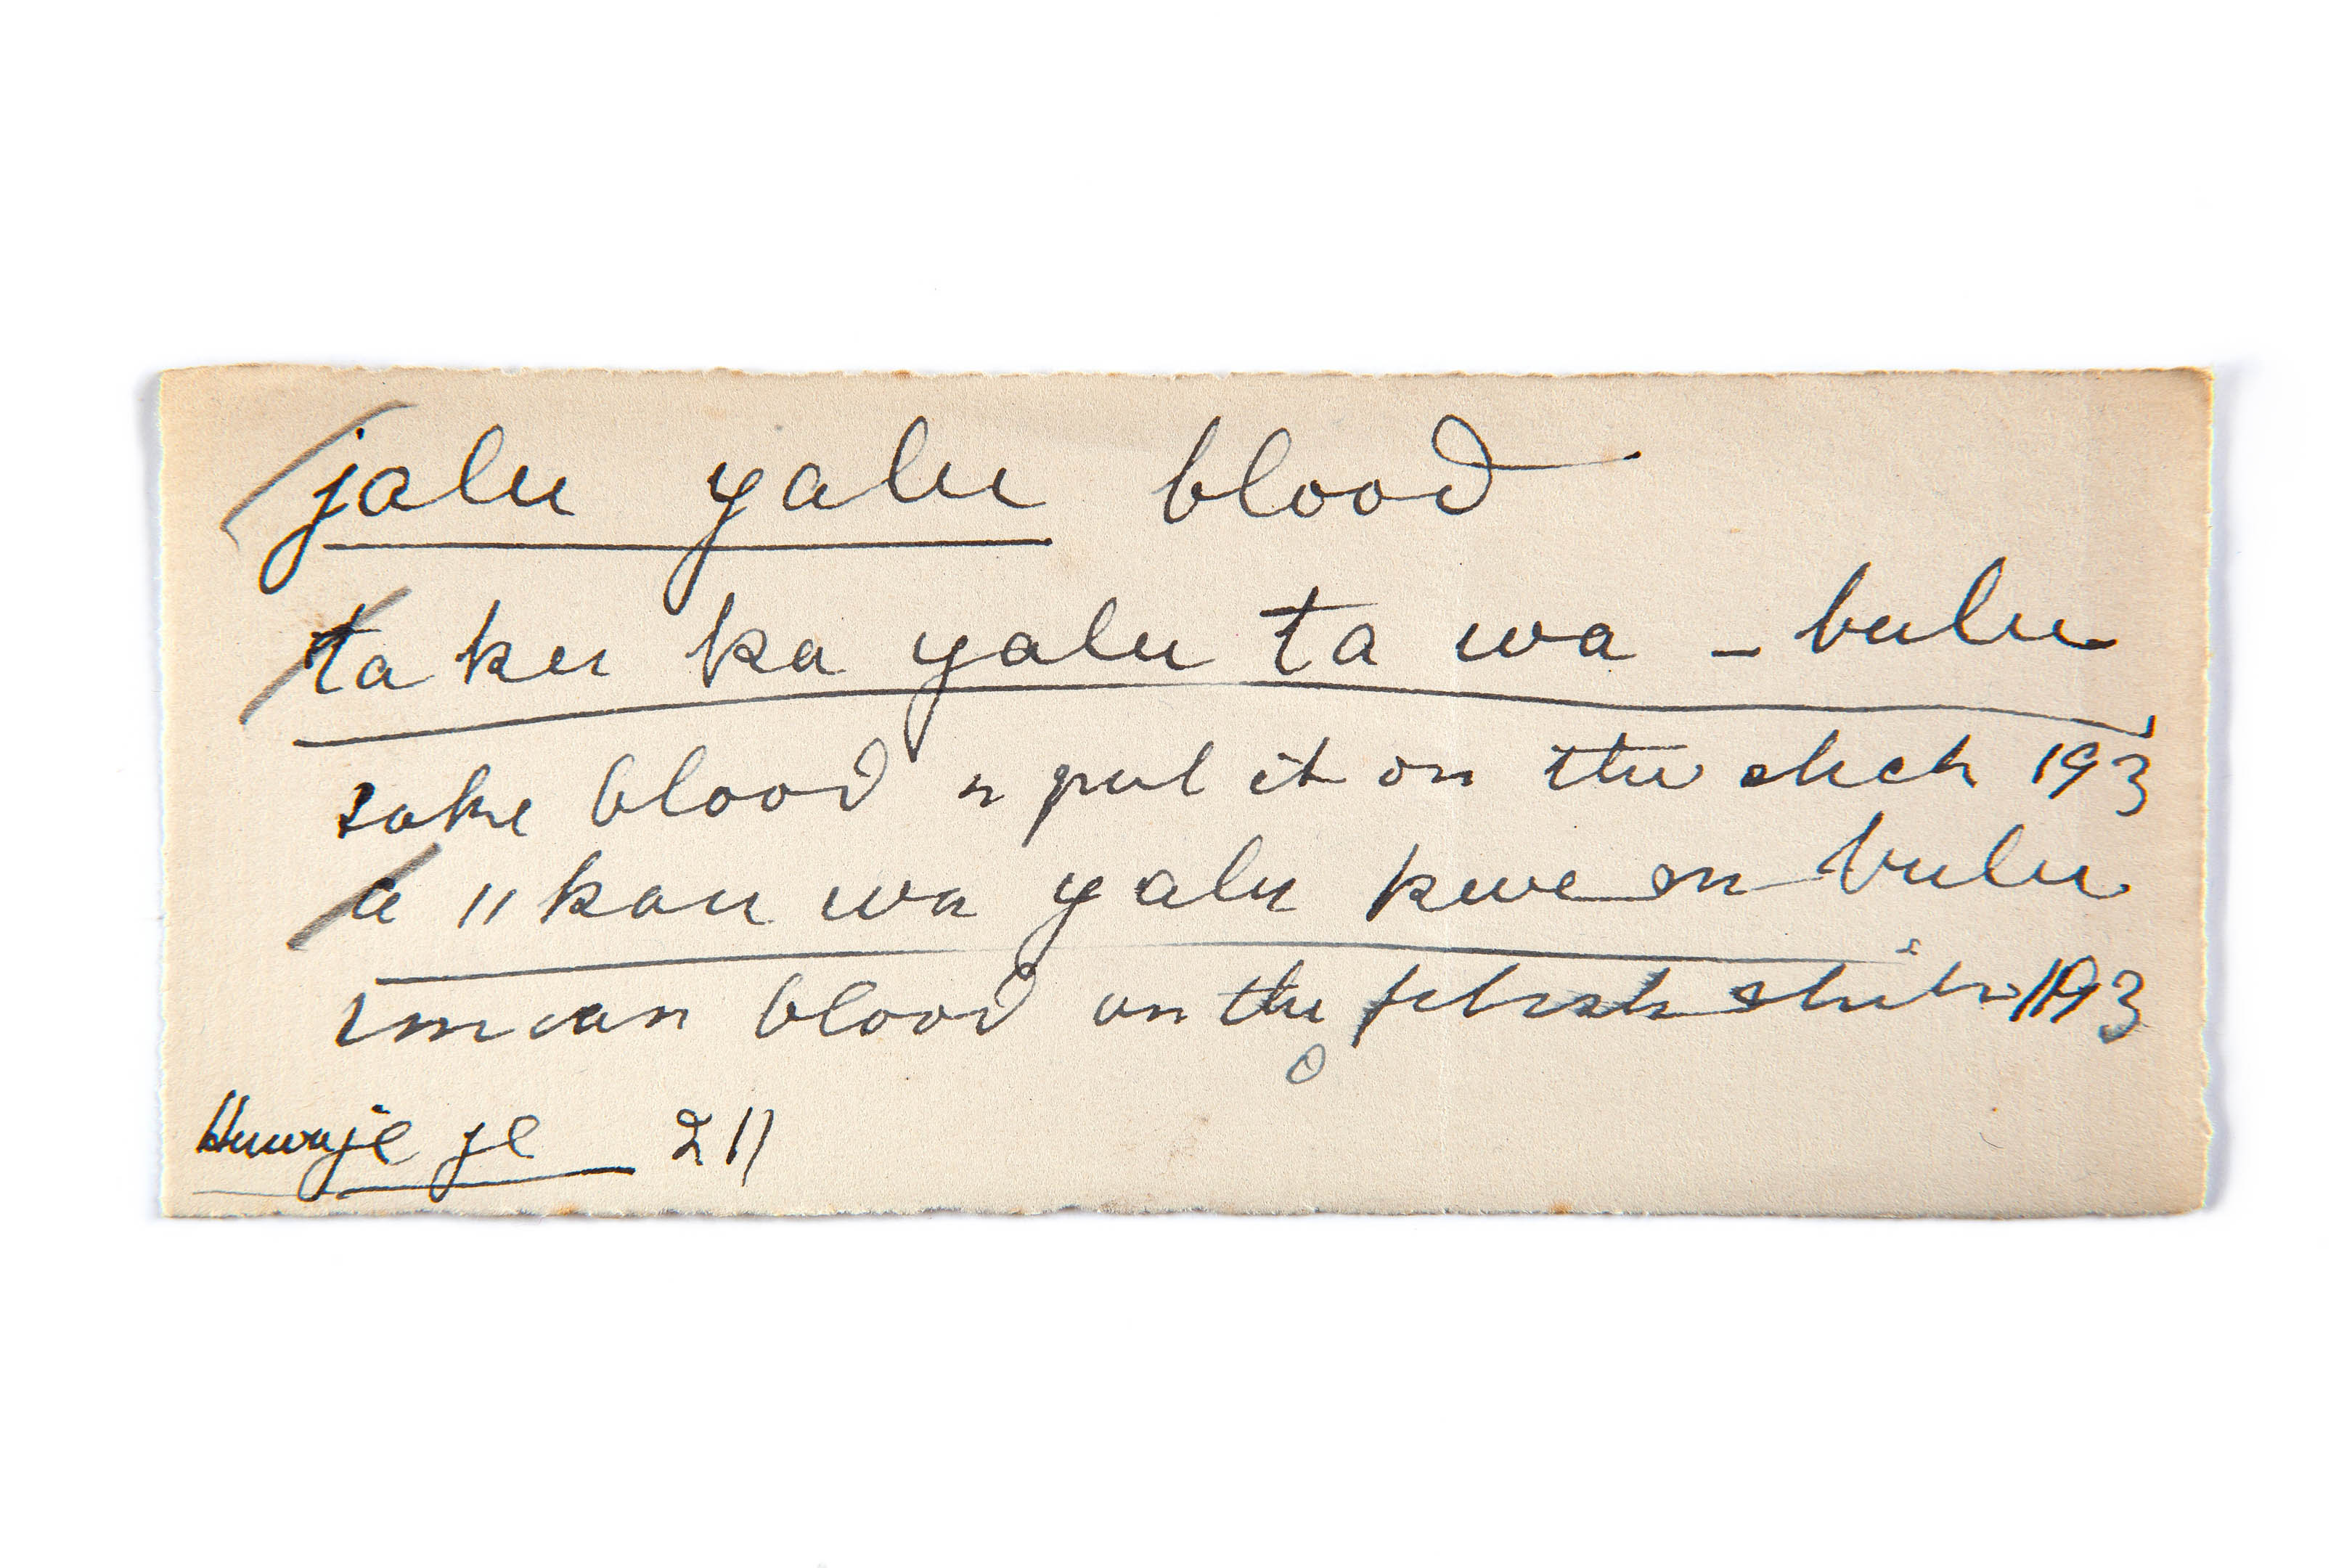 jalu yalu blood
ta ku ka yalu ta wa - bulu
take blood n put it on the stick 193
a " kau wa yalu kwe bulu
smear blood on the fetish 193
211